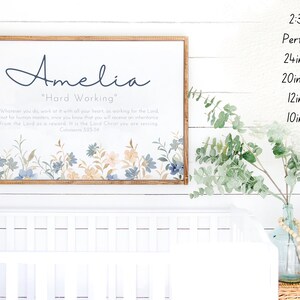 Amelia
"Hard Working"
Whatever you do, work at it with all your heart, as working for the Lord,
not for human masters, since you know that you will receive an inheritance
from the Lord as a reward. It is the Lord Christ you are serving.
Colossians 3:23-24
2:3
Perf
24in
20in
12in
10in